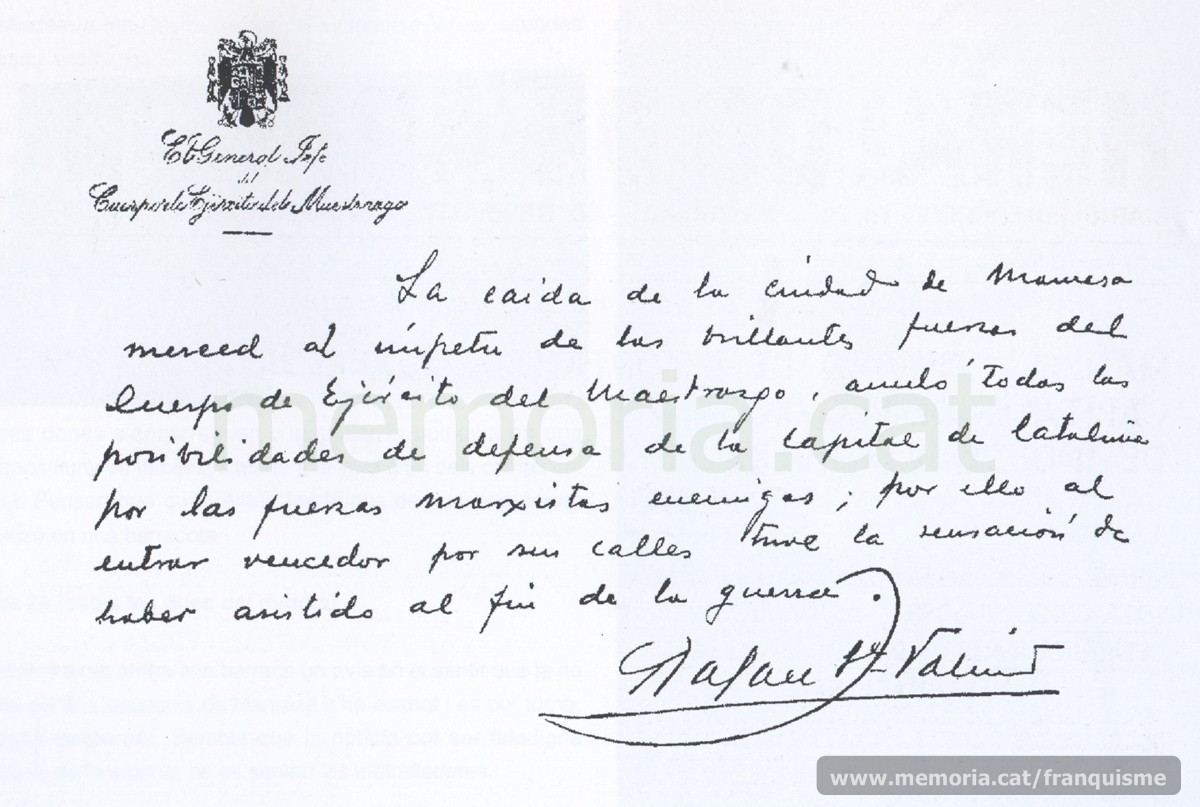 El General Jefe
del
Cuerpo de Ejército del Maestrazgo
La caida de la ciudad de Manresa
merced al ímpetu de las brillantes fuerzas del
Cuerpo de Ejército del Maestrazgo, anuló todas las
posibilidades de defensa de la capital de Cataluña
por las fuerzas marxistas enemigas; por ello al
entrar vencedor por sus calles tuve la sensación de
haber asistido al fin de la guerra.
Rafael G. Valiño
memoria.cat
www.memoria.cat/franquisme